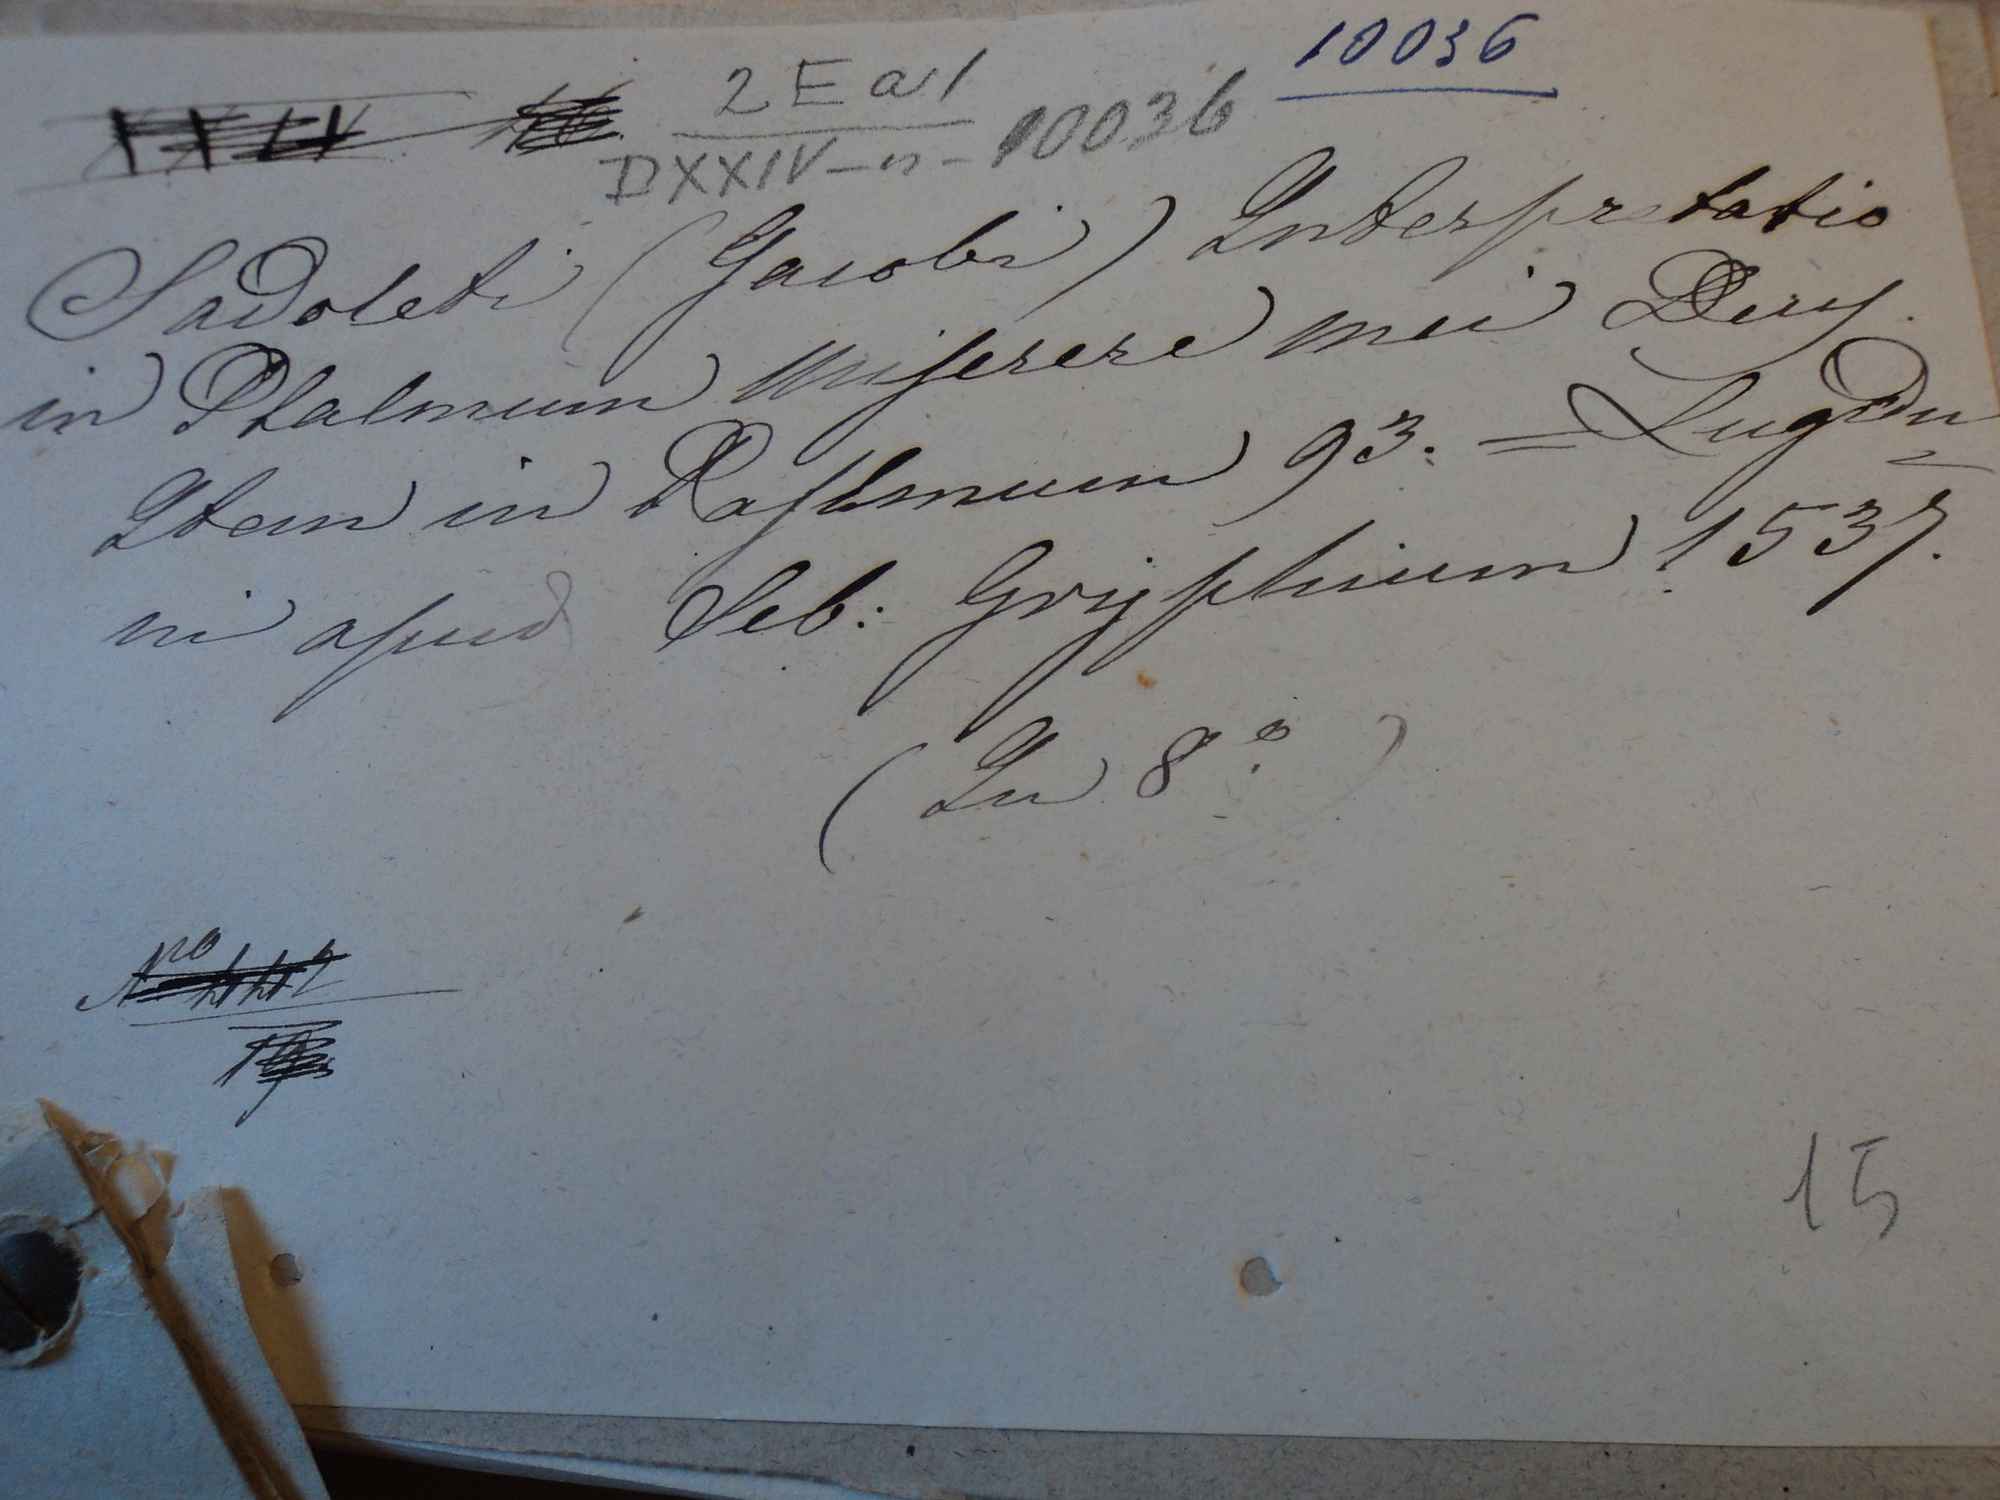 10036
2 E a/1
DXXIV-n-10036
Sadoleti (Jacobi) Interpretatio
in Psalmum Miserere mei Deus.
Item in Psalmum 93. = Lugdu=
ni apud Seb: Gryphium 1537.
(In 8º.)
Nro
15